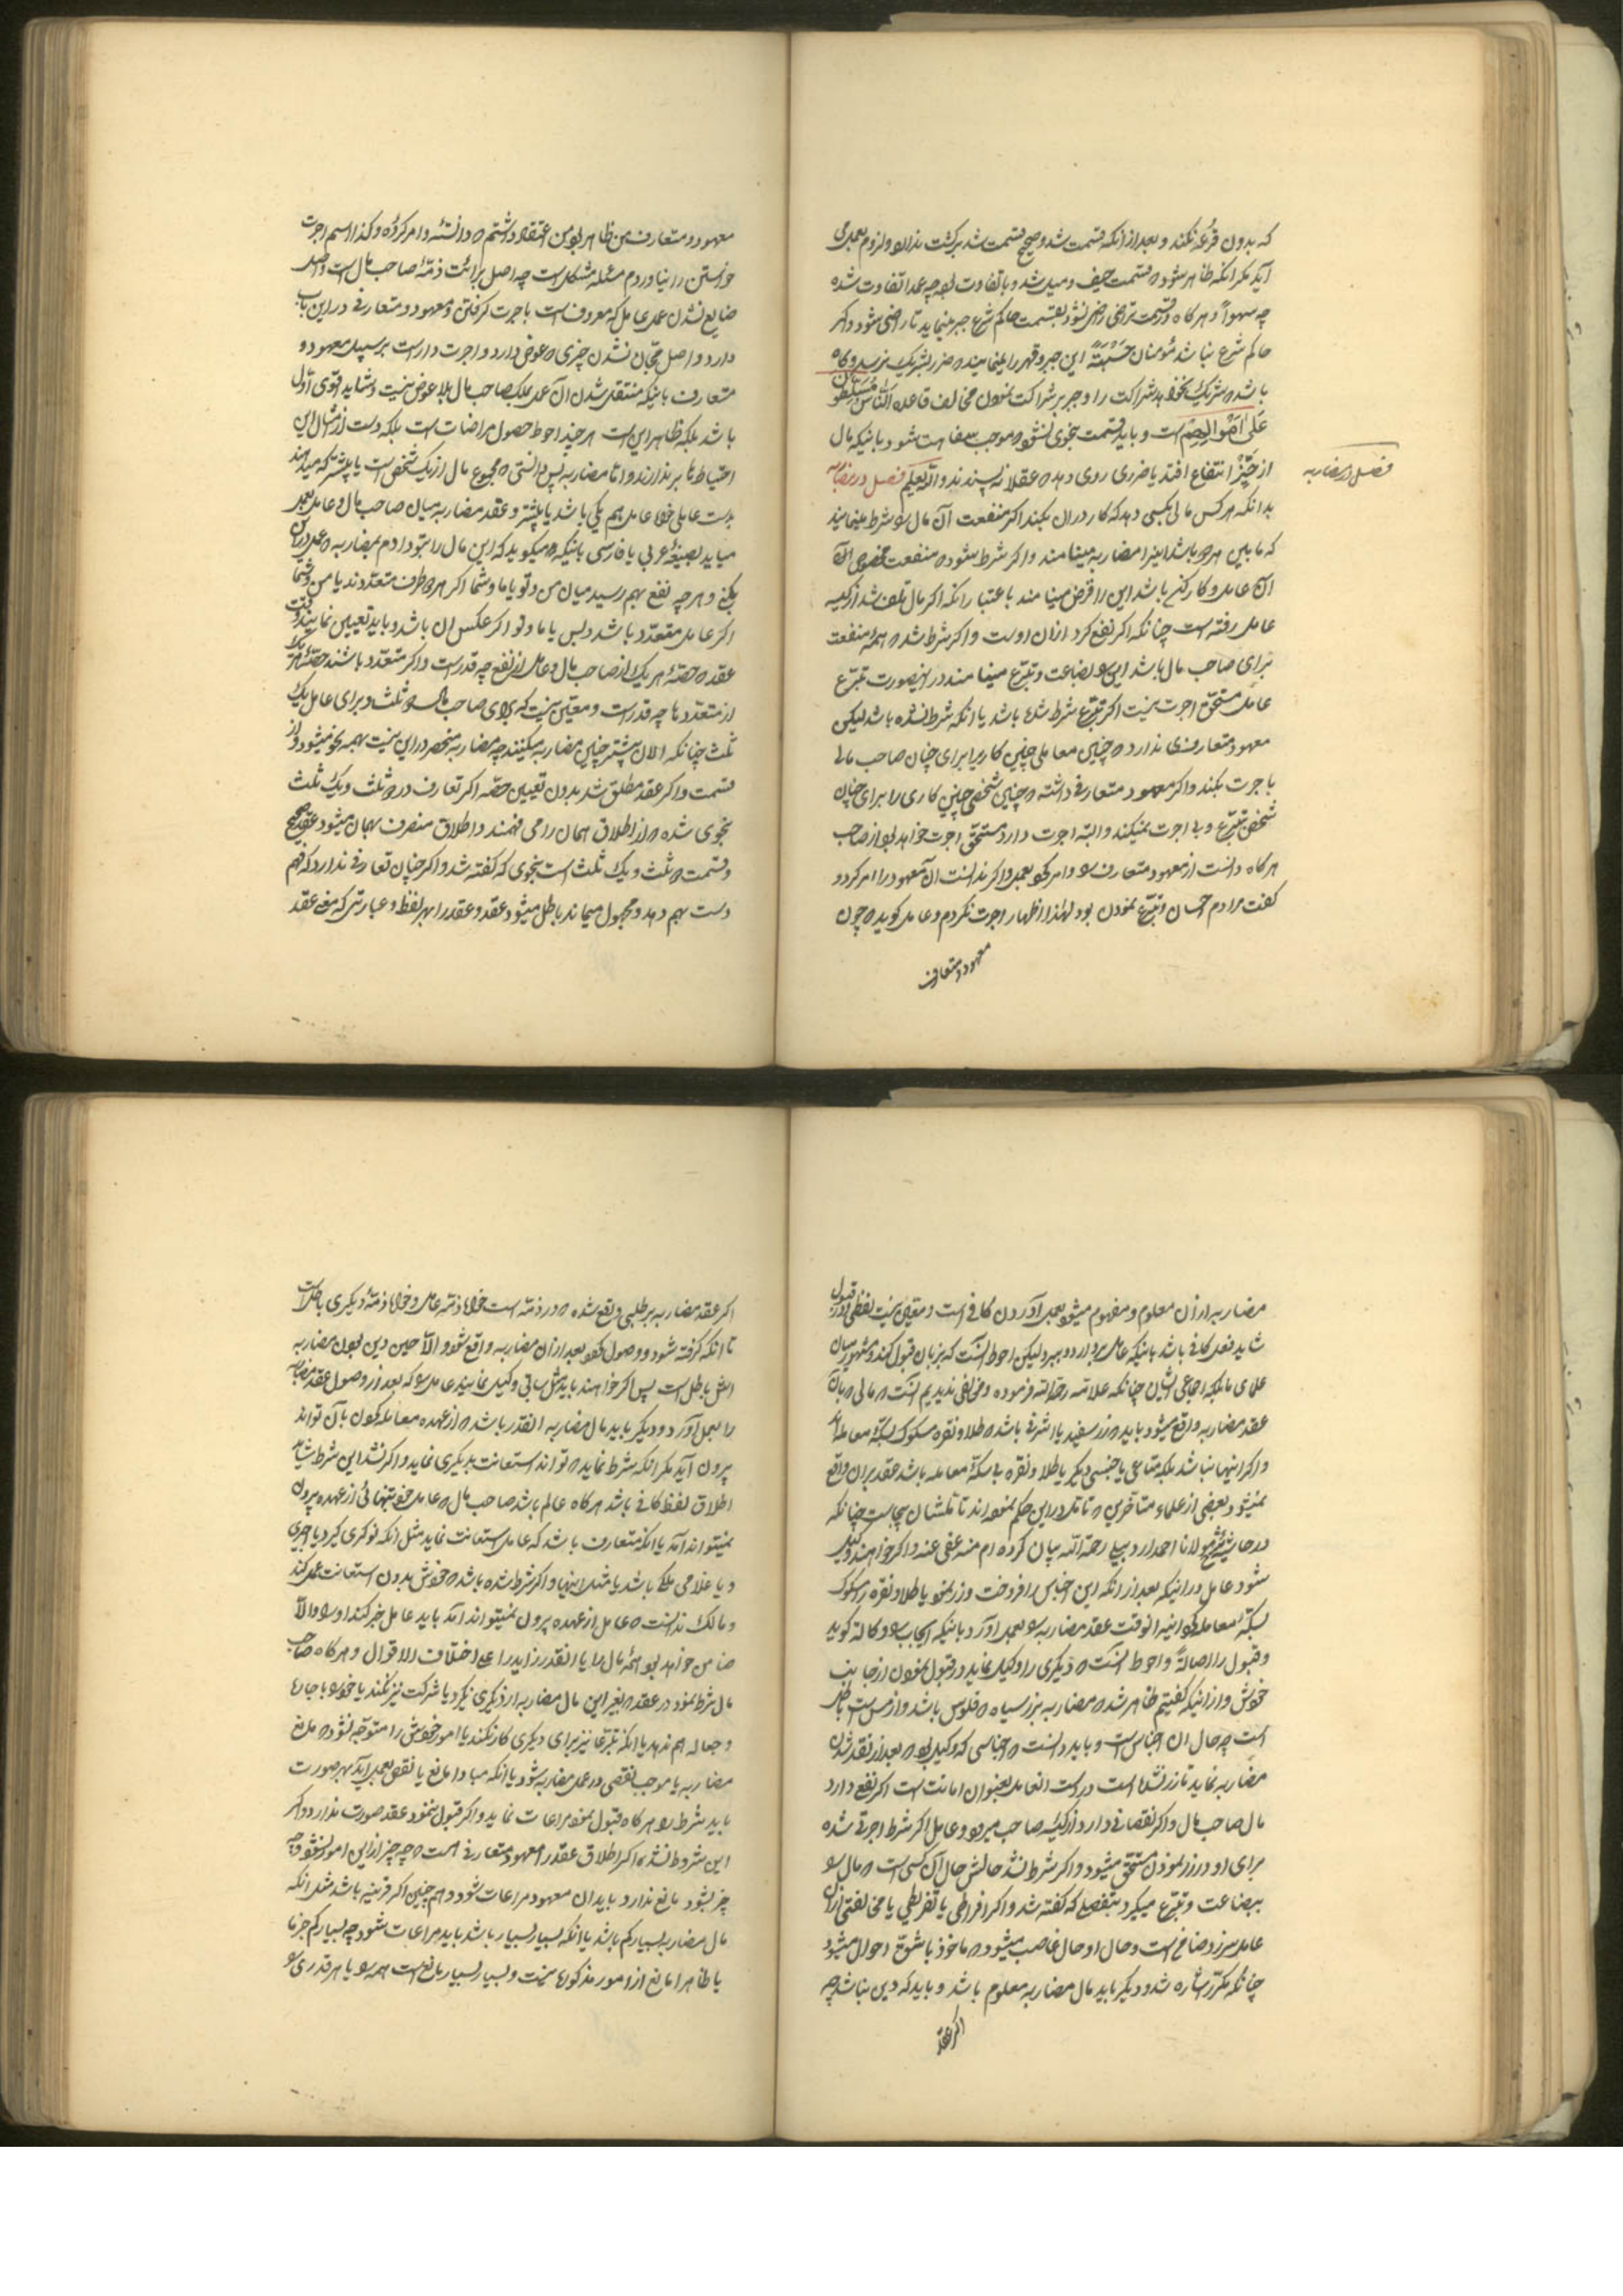 که بدون قرعه نکنند و بعد از آنکه قسمت شد و صحیح قسمت شد برگشت ندارد و لزوم بعمل می
آید مگر آنکه ظاهر شود که قسمت حیف و میل شد و با تفاوت بود چه عمدا تفاوت شده
چه سهواً و هرگاه در قسمت تراضی راضی نشود بقسمت حاکم شرع جبر مینماید تا راضی شود و اگر
حاکم شرع نباشد مؤمنان حسبةً این جبر و قهر را مینمایند که ضرر بشریک نرسد و گاه
باشد که شریک نخواهد شراکت را و جبر بر شراکت نمودن مخالف قاعده الناس مسلطون
علی اموالهم است و باید قسمت بنحوی نشود که موجب سفاهت شود باینکه مال
از حیّز انتفاع افتد یا ضرری روی دهد که عقلا نه پسندند والله یعلم فصل در مضاربه
فصل در مضاربه
بدانکه هر کس مالی بکسی دهد که کار در آن بکند اگر منفعت آن مال را شرط مینمایند
که مابین هر دو باشد اینرا مضاربه مینامند و اگر شرط شود که منفعت مخصوص آن
آن عامل و کارکن باشد این را قرض مینامند باعتبار آنکه اگر مال تلف شد از کیسه
عامل رفته است چنانکه اگر نفع کرد از آن اوست و اگر شرط شد که همه منفعت
برای صاحب مال باشد این را بضاعت و تبرّع مینامند در اینصورت تبرّع
عامل مستحق اجرت نیست اگر تبرّع شرط شده باشد یا آنکه شرط نشده باشد لیکن
معهود و متعارفی ندارد که چنین معاملی چنین کاری را برای چنان صاحب مالی
با جرت بکند و اگر معهود متعارفی داشته که چنین شخصی چنین کاری را برای چنان
شخص تبرّع و بی اجرت نمیکند و البته اجرت دارد مستحق اجرت خواهد بود از صاحب
هرگاه دانست از معهود متعارف را و امر نمود بعمل و اگر ندانست آن معهود را امر کرد و
گفت مرادم احسان و تبرّع نمودن بود لهذا اظهار اجرت نکردم و عامل گوید که چون
معهود و متعارف
معهود و متعارف من ظاهر بود من اعتقاد داشتم که دانسته و امر کرده و کذا اسم اجرت
خواستن را نیاوردم مسئله مشکل است چه اصل برائت ذمّه صاحب مال است و اصل
ضایع نشدن عمل عامل که معروف است باجرت گرفتن و معهود و متعارفی در این باب
دارد و اصل مجّان نشدن چیزی که عوض دارد و اجرت دار است بر سبیل معهود و
متعارف باینکه منتقل شدن آن عمل بملک صاحب مال بلا عوض نیست و شاید قوی اوّلی
باشد بلکه ظاهر این است هر چند احوط حصول مراضات است بلکه دست از مثال این
احتیاط تا بر ندارند و اما مضاربه پس دانستی که مجموع مال از یک شخص است یا بیشتر که میدهند
بدست عاملی خواه عامل هم یکی باشد یا بیشتر و عقد مضاربه میان صاحب مال و عامل بعمل
میاید بصیغه عربی یا فارسی باینکه میگوید که این مال را بتو دادم بمضاربه که عمل در آن
بکنی و هر چه نفع بهم رسید میان من و تو یا ما و شما اگر هر دو طرف متعددند یا من و شما
اگر عامل متعدّد باشد و بس یا ما و تو اگر عکس آن باشد و باید تعیین نمایند وقت
عقد که حصّه هر یک از صاحب مال و عامل از نفع چه قدر است و اگر متعدّد باشند حصّه هر یک
از متعددها چه قدر است و معیّن نیست که برای صاحب مال دو ثلث و برای عامل یک
ثلث چنانکه الان بیشتر چنین مضاربه میکنند چه مضاربه منحصر در این نیست بهمه نحو میشود و از
قسمت و اگر عقد مطلق شد بدون تعیین حصّه اگر تعارف در دو ثلث و یک ثلث
بنحوی شده که از اطلاق همان را می فهمند و اطلاق منصرف بهمان میشود عقد صحیح
و قسمت دو ثلث و یک ثلث است بنحوی که گفته شد و اگر چنان تعارفی ندارد که فهم
دست بهم دهد و مجهول میماند باطل میشود عقد و عقد را بهر لفظ و عبارتی که معنی عقد
مضاربه از آن معلوم و مفهوم میشود بعمل آوردن کافی است و معیّن نیست لفظی و در قبول
شاید فعل کافی باشد باینکه عامل بردارد و ببرد لیکن احوط آنست که بزبان قبول کند و مشهور میان
علمای ما بلکه اجماعی ایشان چنانکه علامه رحمه الله فرموده و مخالفی ندیدیم آنست که مالی که بآن
عقد مضاربه واقع میشود باید که زر سفید یا اشرفی باشد که طلا و نقره مسکوک بسکّه معامله
و اگر اینها نباشد بلکه متاعی یا جنسی دیگر یا طلا و نقره بی سکّه معامله باشد عقد بر آن واقع
نمیشود و بعضی از علماء متأخرین که تأمّل در این حکم نموده اند تأمّلشان بیجاست چنانکه
در حاشیه شرح مولانا احمد اردبیلی رحمة الله بیان کرده ام منه عفی عنه و اگر خواهند وکیل
شود عامل در اینکه بعد از آنکه این اجناس را فروخت و زر نمود یا طلا و نقره را مسکوک
بسکّه معامله گردانید آنوقت عقد مضاربه را بعمل آورد باینکه ایجاب را وکالة گوید
و قبول را اصالةً و احوط آنست که دیگری را وکیل نماید در قبول نمودن از جانب
خویش و از اینکه گفتیم ظاهر شد که مضاربه بزر سیاه که فلوس باشد و از مس است باطل
است چه حال آن اجناس است و باید دانست که اجناسی که وکیل بود که بعد از نقد شدن
مضاربه نماید تا زر نشده است در دست آنعامل بعنوان امانت است اگر نفع دارد
مال صاحب مال و اگر نقصانی دارد از کیسه صاحب میرود و عامل اگر شرط اجرتی شده
برای او در زر نمودن مستحق میشود و اگر شرط نشد حالش حال آن کسی است که مال را
ببضاعت و تبرّع میگیرد بتفصیلی که گفته شد و اگر افراطی یا تفریطی یا مخالفتی از آن
عامل سر زد ضامن است و حال او حال غاصب میشود که ماخوذ باشقّ احوال میشود
چنانکه مکرّر اشاره شد و دیگر باید مال مضاربه معلوم باشد و باید که دین نباشد چه
اگر عقد
اگر عقد مضاربه بر طلبی واقع شده که در ذمّه است خواه ذمّه عامل و خواه ذمّه دیگری باطل است
تا آنکه گرفته شود و وصول نمود بعد از آن مضاربه واقع شود و الا حین دین بودن مضاربه
اش باطل است پس اگر خواهند باید مثل سابق وکیل نمایند عامل را که بعد از وصول عقد مضاربه
را بعمل آورد و دیگر باید مال مضاربه آنقدر باشد که از عهده معامله نمودن بآن تواند
بیرون آید مگر آنکه شرط نماید که تواند استعانت بدیگری نماید و اگر نشد این شرط شاید
اطلاق لفظ کافی باشد هرگاه عالم باشد صاحب مال که عامل خود بتنهائی از عهده بیرون
نمیتواند آمد یا آنکه متعارف باشد که عامل استعانت نماید مثل آنکه نوکری گیرد یا اجیری
و یا غلامی ملکی باشد یا مثل اینها و اگر شرط شده باشد که خودش بدون استعانت عمل کند
و مالک ندانست که عامل از عهده بیرون نمیتواند آمد باید عامل خبر کند او را و الا
ضامن خواهد بود همه مال را یا آنقدر زاید را علی اختلاف الاقوال و هرگاه صاحب
مال شرط نمود در عقد که بغیر این مال مضاربه از دیگری نگیرد یا شرکت نیز نکند یا خود را باجاره
و جعاله هم ندهد یا آنکه تبرّعا نیز برای دیگری کار نکند یا امور خویش را متوجّه نشود که مانع
مضاربه یا موجب نقصی در عمل مضاربه شود یا آنکه مبادا مانع یا نقص بعمل آید بهر صورت
باید شرط را هرگاه قبول نمود مراعات نماید و اگر قبول ننمود عقد صورت ندارد و اگر
این شروط نشد اگر اطلاق عقد را معهود متعارفی است که چه چیز از این امور نشود و چه
چیز بشود مانع ندارد باید آن معهود مراعات شود و هم چنین اگر قرینه باشد مثل آنکه
مال مضاربه بسیار کم باشد یا آنکه بسیار بسیار باشد باید مراعات شود چه بسیار کم جزما
یا ظاهرا مانع از امور مذکوره نیست و بسیار بسیار مانع است همه را یا هر قدری را